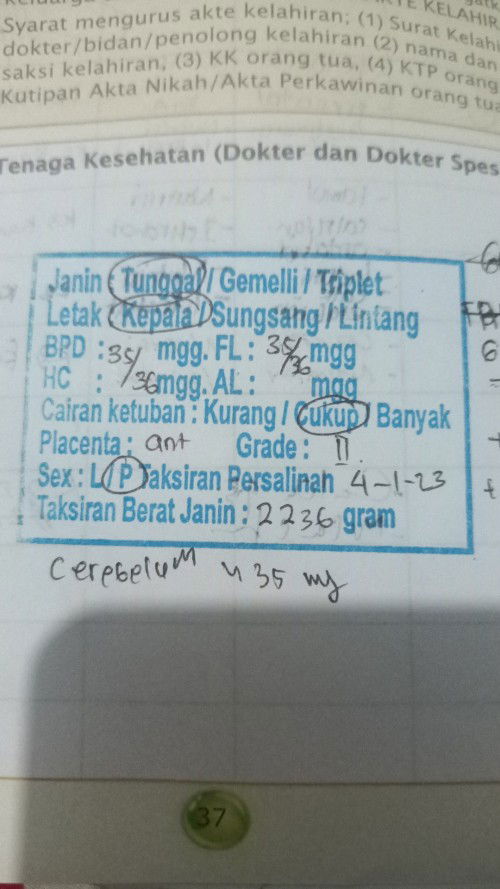 Syarat mengurus akte kelahiran; (1) Surat Kelah
dokter/bidan/penolong kelahiran (2) nama dan
saksi kelahiran, (3) KK orang tua, (4) KTP orang
Kutipan Akta Nikah/Akta Perkawinan orang tua
Tenaga Kesehatan (Dokter dan Dokter Spes
Janin : Tunggal / Gemelli / Triplet
Letak : Kepala / Sungsang / Lintang
BPD : 35/ mgg. FL : 35/36 mgg
HC : /36 mgg. AL : mgg
Cairan ketuban : Kurang / Cukup / Banyak
Placenta : ant Grade : II
Sex : L / P Taksiran Persalinan 4-1-23
Taksiran Berat Janin : 2236 gram
Cerebelum 35 mg
37